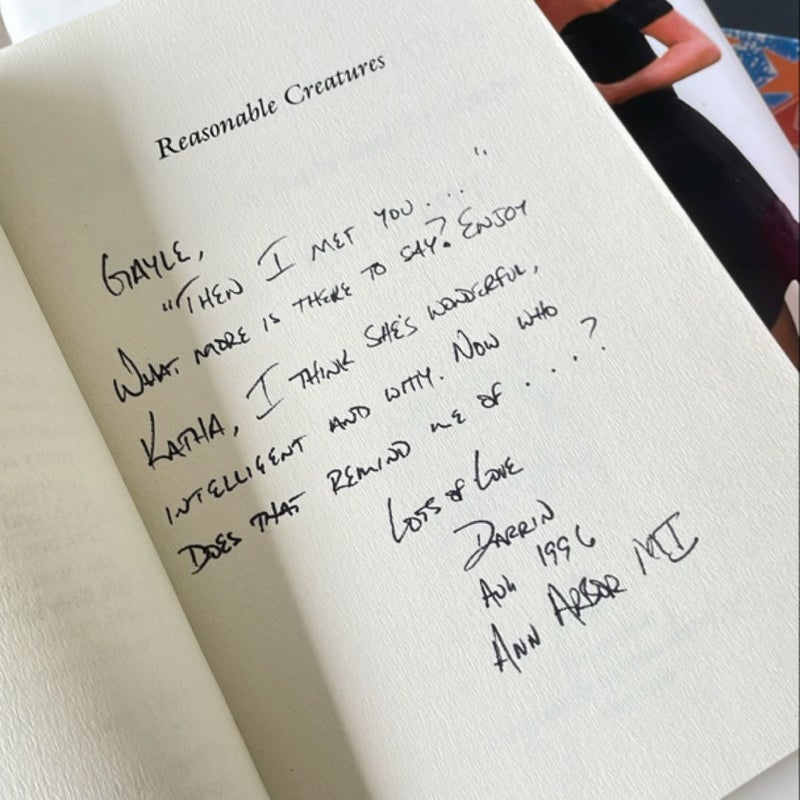 Reasonable Creatures
GAYLE,
"THEN I MET YOU . . . "
WHAT MORE IS THERE TO SAY? ENJOY
KATHA, I THINK SHE'S WONDERFUL,
INTELLIGENT AND WITTY. NOW WHO
DOES THAT REMIND ME OF . . . ?
LOTS OF LOVE
DARRIN
AUG 1996
ANN ARBOR MI